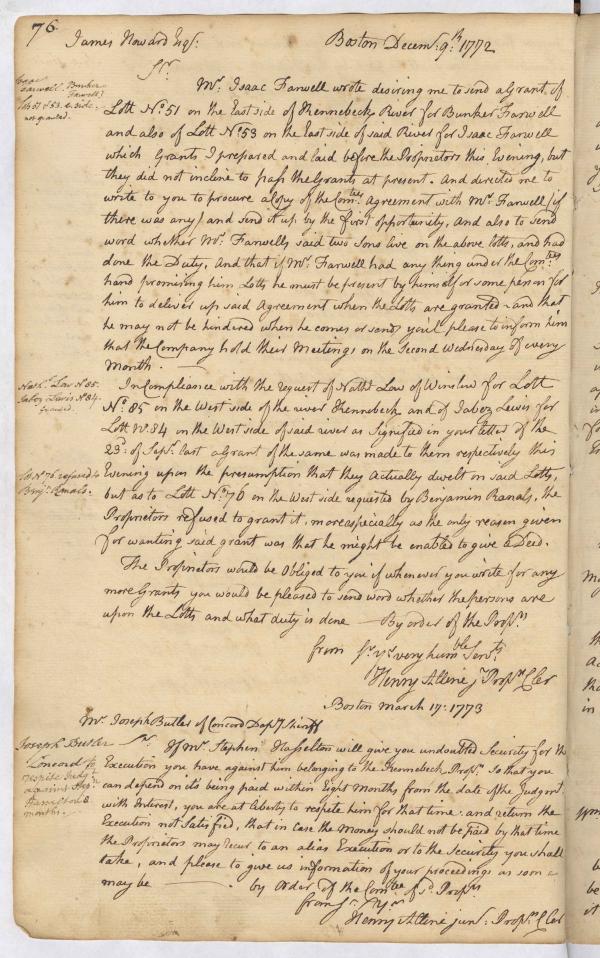 76
James Howard Esqr. Boston Decemr. 9th. 1772
Sr.
Isaac
Farwell. Bunker
Farwell
Lots 51 & 53. E. side.
not granted.
Mr. Isaac Farwell wrote desiring me to send a Grant of
Lott No. 51 on the East side of Kennebeck River for Bunker Farwell
and also of Lott No. 53 on the East side of said River for Isaac Farwell
which Grants I prepared and laid before the Proprietors this Evening, but
they did not incline to pass the Grants at present. And directed me to
write to you to procure a Copy of the Comtees Agreement with Mr. Farwell (if
there was any) and send it up by the first opportunity, And also to send
word whether Mr. Farwells said two Sons live on the above lotts, and had
done the Duty, And that if Mr. Farwell had any thing under the Comtees
hand promising him Lotts he must be present by himself or some person for
him to deliver up said Agreement when the Lotts are granted - and that
he may not be hindered when he comes or sends you'l please to inform him
that the Company hold their Meetings on the Second Wednesday of every
Month.
Nathl. Law No. 85.
Jabez Lewis No. 84.
granted.
In Compliance with the request of Nathl. Law of Winslow for Lott
No. 85 on the West side of the river Kennebeck and of Jabez Lewis for
Lott No. 84 on the West side of said river as Signified in your letter of the
23d. of Sepr. last a Grant of the same was made to them respectively this
Lot No. 76 refused to
Benj. Ranals.
Evening upon the presumption that they actually dwelt on said Lotts,
but as to Lott No. 76 on the West side requested by Benjamin Ranals, the
Proprietors refused to grant it, more especially as the only reason given
for wanting said grant was that he might be enabled to give a Deed.
The Proprietors would be Obliged to you if whenever you write for any
more Grants you would be pleased to send word whether the persons are
upon the Lotts and what duty is done - By order of the Proprs
from Sr. yr. very humble Servt.
Henry Alline jr. Proprs Cler
Boston March 17. 1773
Mr. Joseph Butler of Concord Depy. Sheriff
Joseph Butler
Concord to
respite Judgt.
against Step.
8
months.
Sr. If Mr. Stephen Hasselton will give you undoubted Security for the
Execution you have against him belonging to the Kennebeck Proprs. so that you
can depend on its being paid within Eight Months from the date of the Judgmt.
with Interest, you are at liberty to respite him for that time. and return the
Execution not Satisfied, that in case the Money should not be paid by that time
the Proprietors may recur to an alias Execution or to the Security you shall
take, and please to give us information of your proceedings as soon as
may be - by Order of the Comtee of sd. Proprs
from Sr. Yrs
Henry Alline junr. Proprs Cler